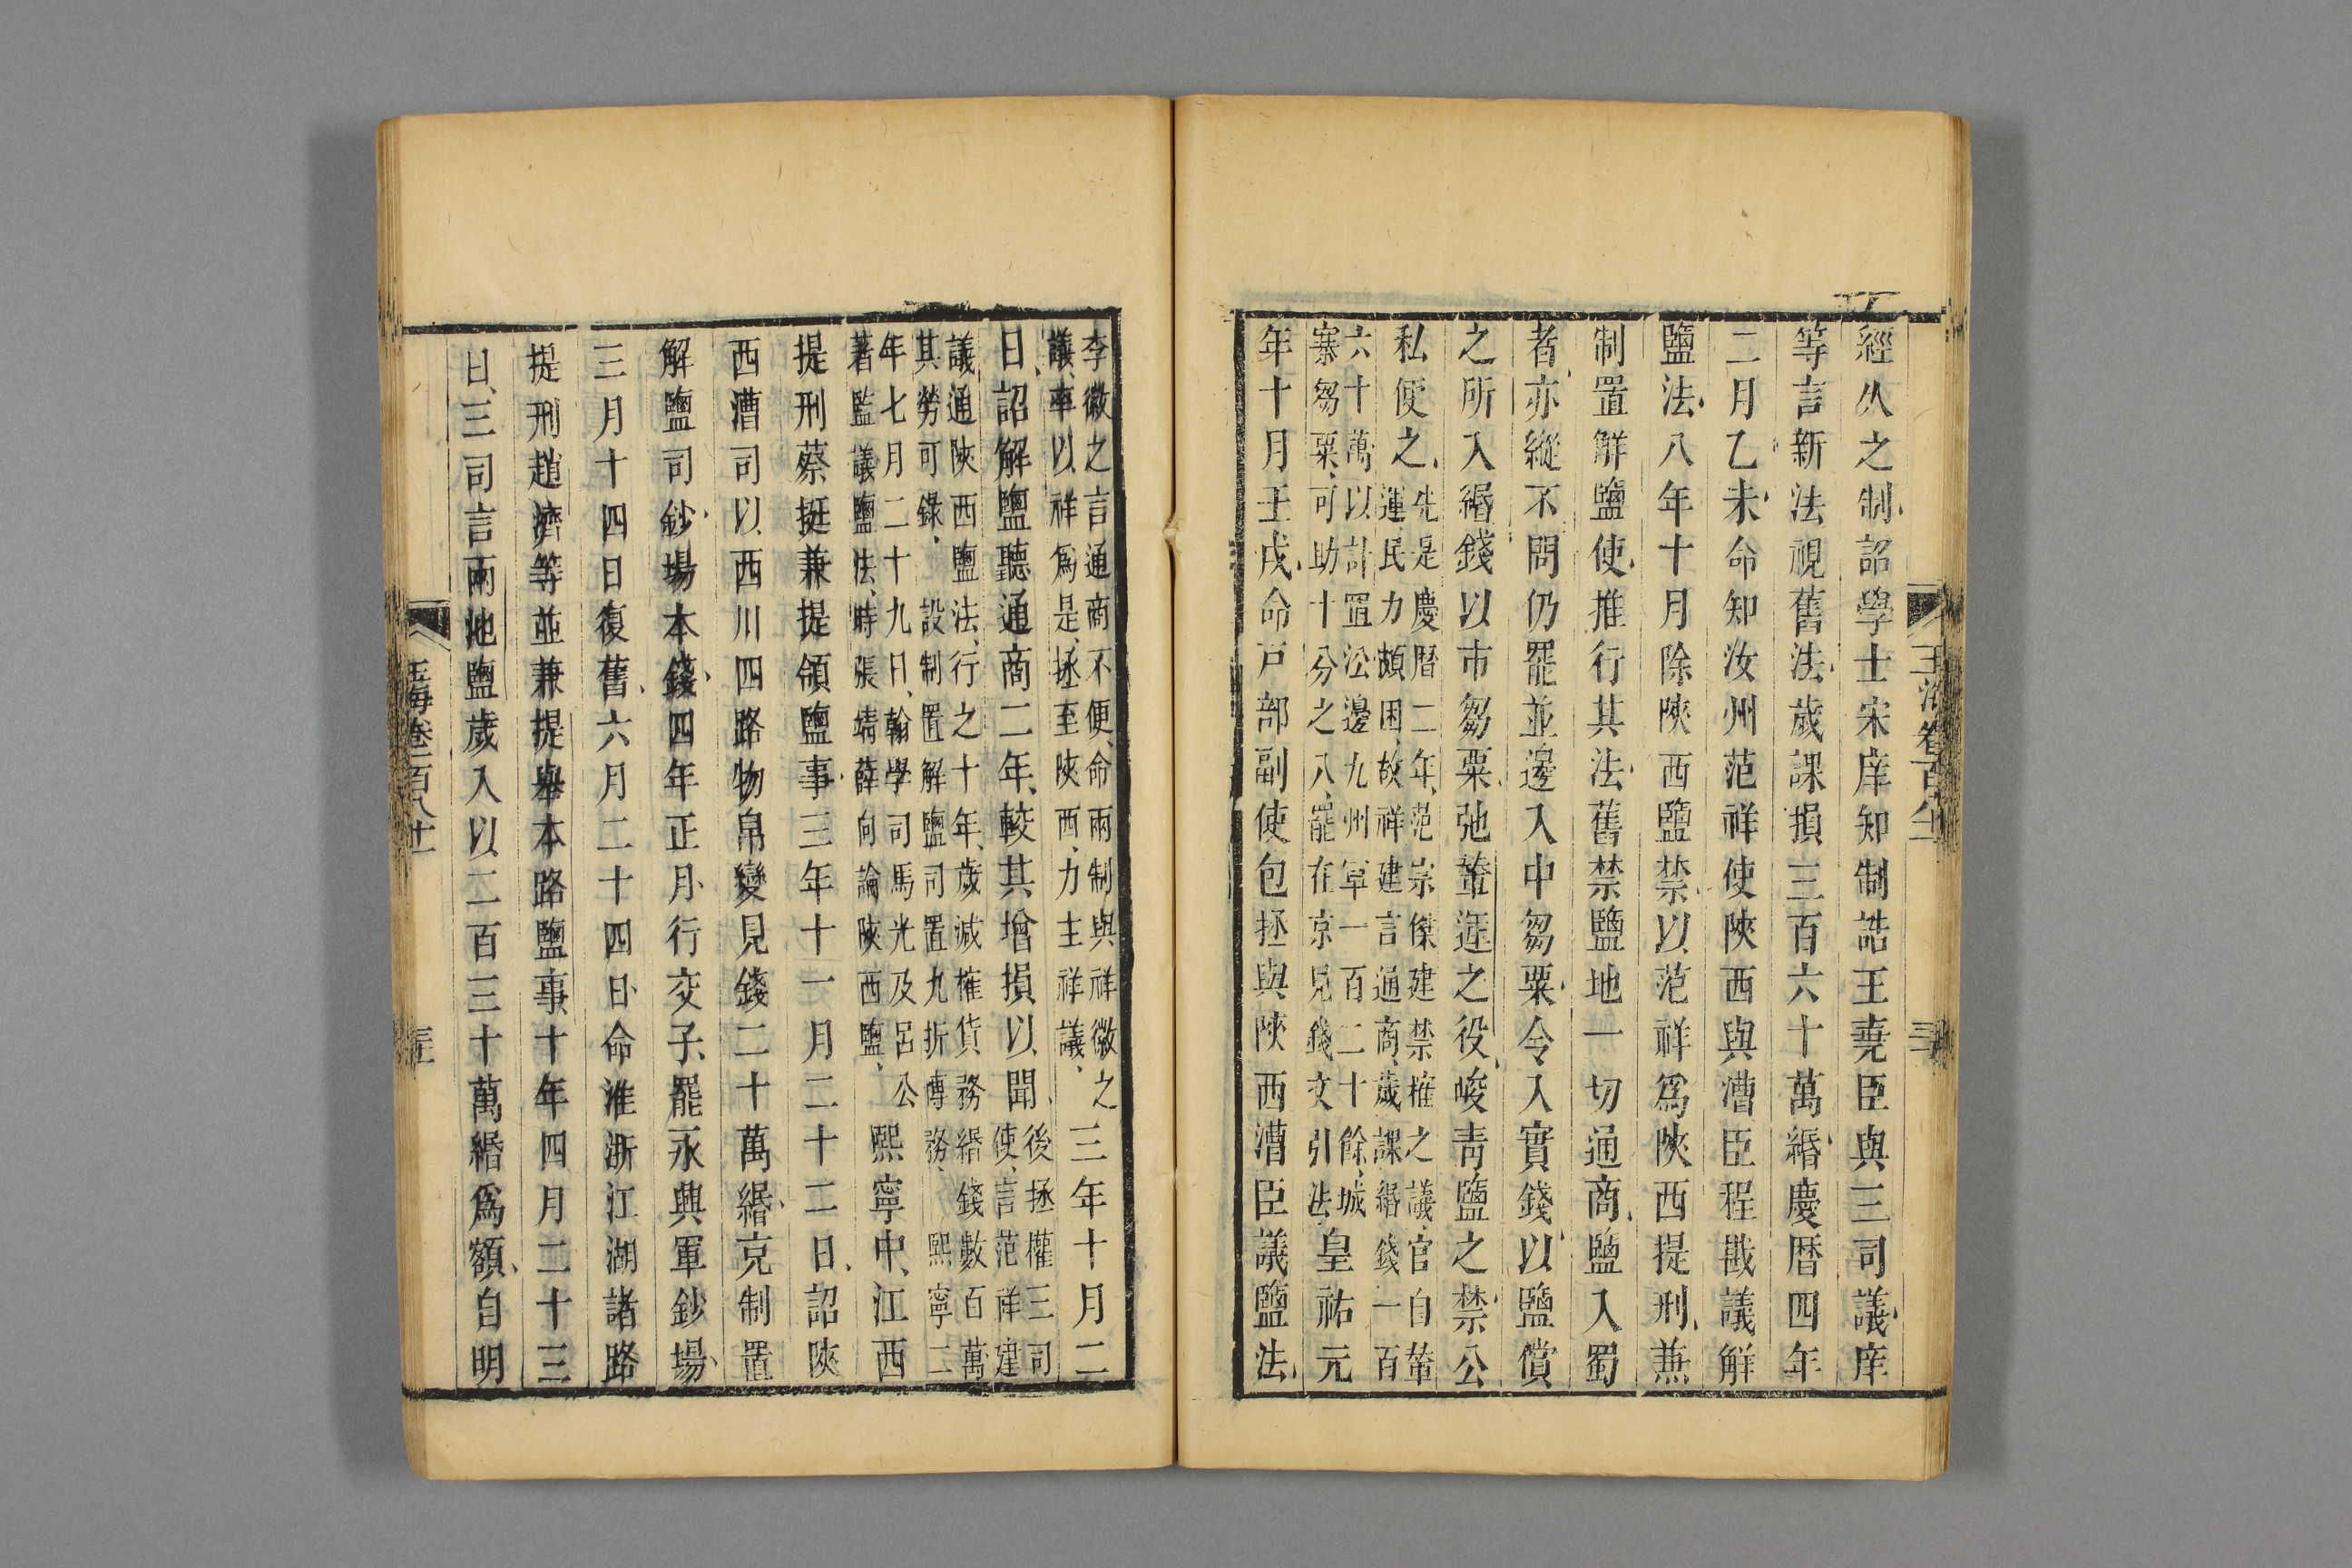 經久之制詔學士宋庠知制誥王堯臣與三司議庠
等言新法視舊法歲課損三百六十萬緡慶曆四年
二月乙未命知汝州范祥使陝西與漕臣程戡議解
鹽法八年十月除陝西鹽禁以范祥爲陝西提刑兼
制置解鹽使推行其法舊禁鹽地一切通商鹽入蜀
者亦縱不問仍罷並邊入中芻粟令入實錢以鹽償
之所入緡錢以市芻粟弛輦運之役峻靑鹽之禁公
私便之
先是慶曆二年范宗傑建禁榷之議官自輦
運民力頗困故祥建言通商歲課緡錢一百
六十萬以計置沿邊九州軍一百二十餘城
寨芻粟可助十分之八罷在京見錢文引法
皇祐元
年十月壬戌命戸部副使包拯與陝西漕臣議鹽法
李徽之言通商不便命兩制與祥徽之
議率以祥爲是拯至陝西力主祥議
三年十月二
日詔解鹽聽通商二年較其增損以聞
後拯權三司
使言范祥建
議通陝西鹽法行之十年歲減榷貨務緡錢數百萬
其勞可錄 設制置解鹽司置九折博務 熙寧二
年七月二十九日翰學司馬光及呂公
著監議鹽法時張靖薛向論陝西鹽
熙寧中江西
提刑蔡挺兼提領鹽事三年十一月二十二日詔陝
西漕司以西川四路物帛變見錢二十萬緡克制置
解鹽司鈔場本錢四年正月行交子罷永興軍鈔場
三月十四日復舊六月二十四日命淮浙江湖諸路
提刑趙濟等並兼提舉本路鹽事十年四月二十三
日三司言兩池鹽歲入以二百三十萬緡爲額自明
玉海卷一百八十一